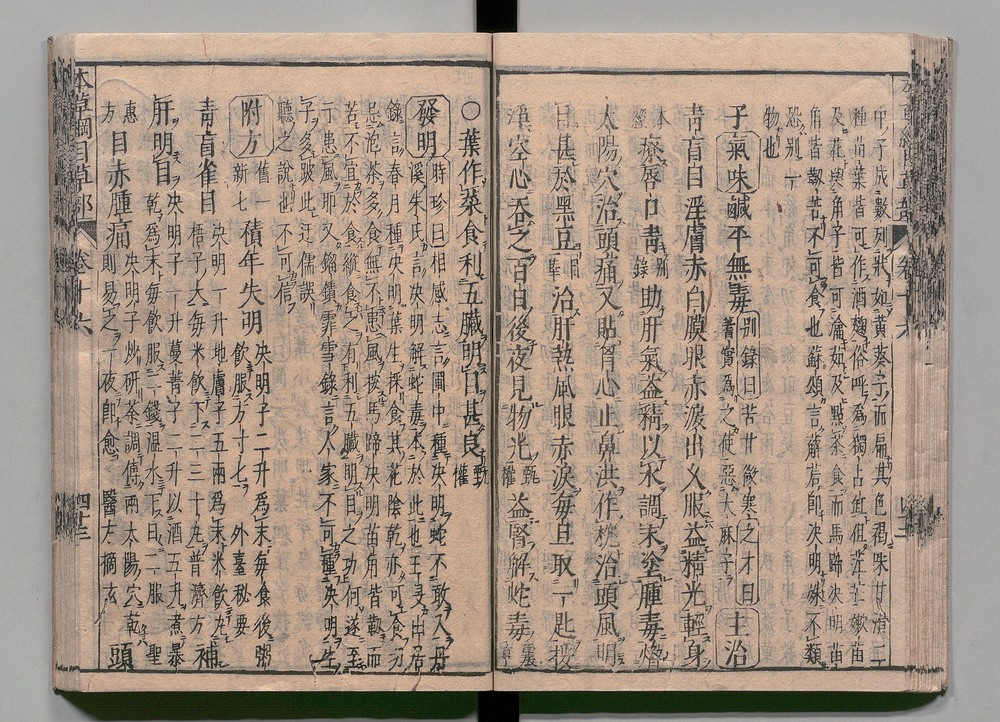 中子成數列狀如黃葵子而扁其色褐味甘滑二
種苗葉皆可作酒麴俗呼為獨占缸但茳芒嫩苗
及花與角子皆可瀹茹及點茶食而馬蹄決明苗
角皆韌苦不可食也蘇頌言薢茩即決明殊不類
恐別一
物也
子氣味鹹平無毒 別錄曰苦甘微寒之才曰蓍實為之使惡大麻子 主治
青盲目淫膚赤白膜眼赤淚出久服益精光輕身
本經 療唇口青 別錄 助肝氣益精以水調末塗腫毒熁
太陽穴治頭痛又貼胷心止鼻洪作枕治頭風明
目甚於黑豆 日華 治肝熱風眼赤淚每旦取一匙挼
淨空心吞之百日後夜見物光 甄權 益腎解蛇毒 震亨
○葉作菜食利五臟明目甚良 甄權
發明 時珍曰相感志言圃中種決明蛇不敢入丹
溪朱氏言決明解蛇毒本於此也王旻山居
錄言春月種決明葉生採食其花陰乾亦可食切
忌泡茶多食無不患風按馬蹄決明苗角皆韌而
苦不宜於食縱食之有利五臟明目之功何遂至
于患風耶又鎦績霏雪錄言人家不可種決明生
子多跛此迂儒誤
聽之說也不可信
附方 舊一新七 積年失明 決明子二升為末每食後粥
飲服方寸七 外臺秘要
青盲雀目 決明一升地膚子五兩為末米飲丸
梧子大每米飲下二三十丸普濟方 補
肝明目 決明子一升蔓菁子二升以酒五升煮暴
乾為末每飲服二錢溫水下日二服 聖
惠方 目赤腫痛 決明子炒研茶調傅兩太陽穴乾
則易之一夜即愈 醫方摘玄 頭
本草綱目草部 卷十六 四十三